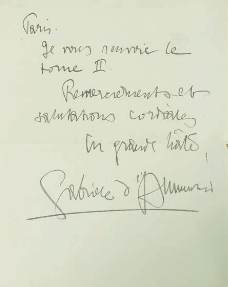 Paris.
Je vous renvoie le
tome II.
Remerciements et
salutations cordiales
En grande hâte,
Gabriele d'Annunzio